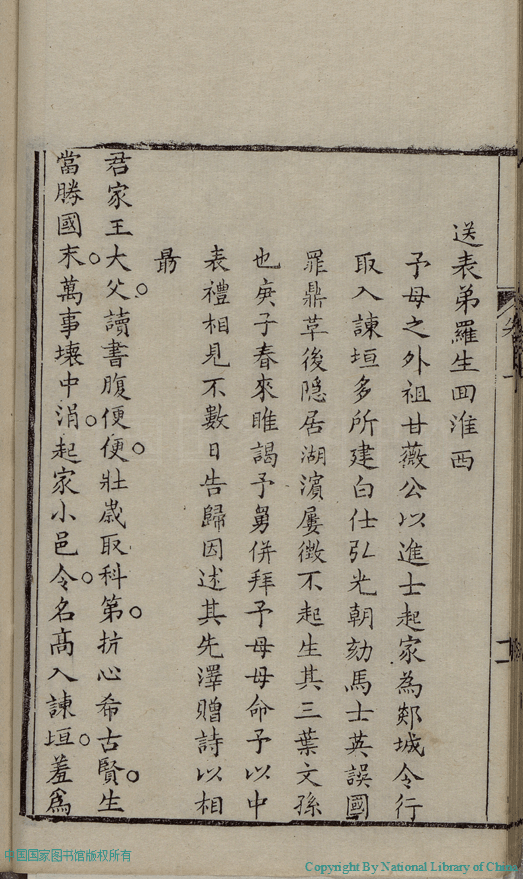 送表弟羅生囬淮西
予母之外祖甘薇公以進士起家為郯城令行
取入諫垣多所建白仕弘光朝劾馬士英誤國
罪鼎革後隐居湖濵屢徴不起生其三葉文孫
也庚子春來睢謁予舅併拜予母母命予以中
表禮相見不數日告歸因述其先澤贈詩以相
勗
君家王大父讀書腹便便壯歲取科第抗心希古賢生
當勝國末萬事壊中涓起家小邑令名髙入諫垣羞爲
中国国家图书馆版权所有
Copyright By National Library of China